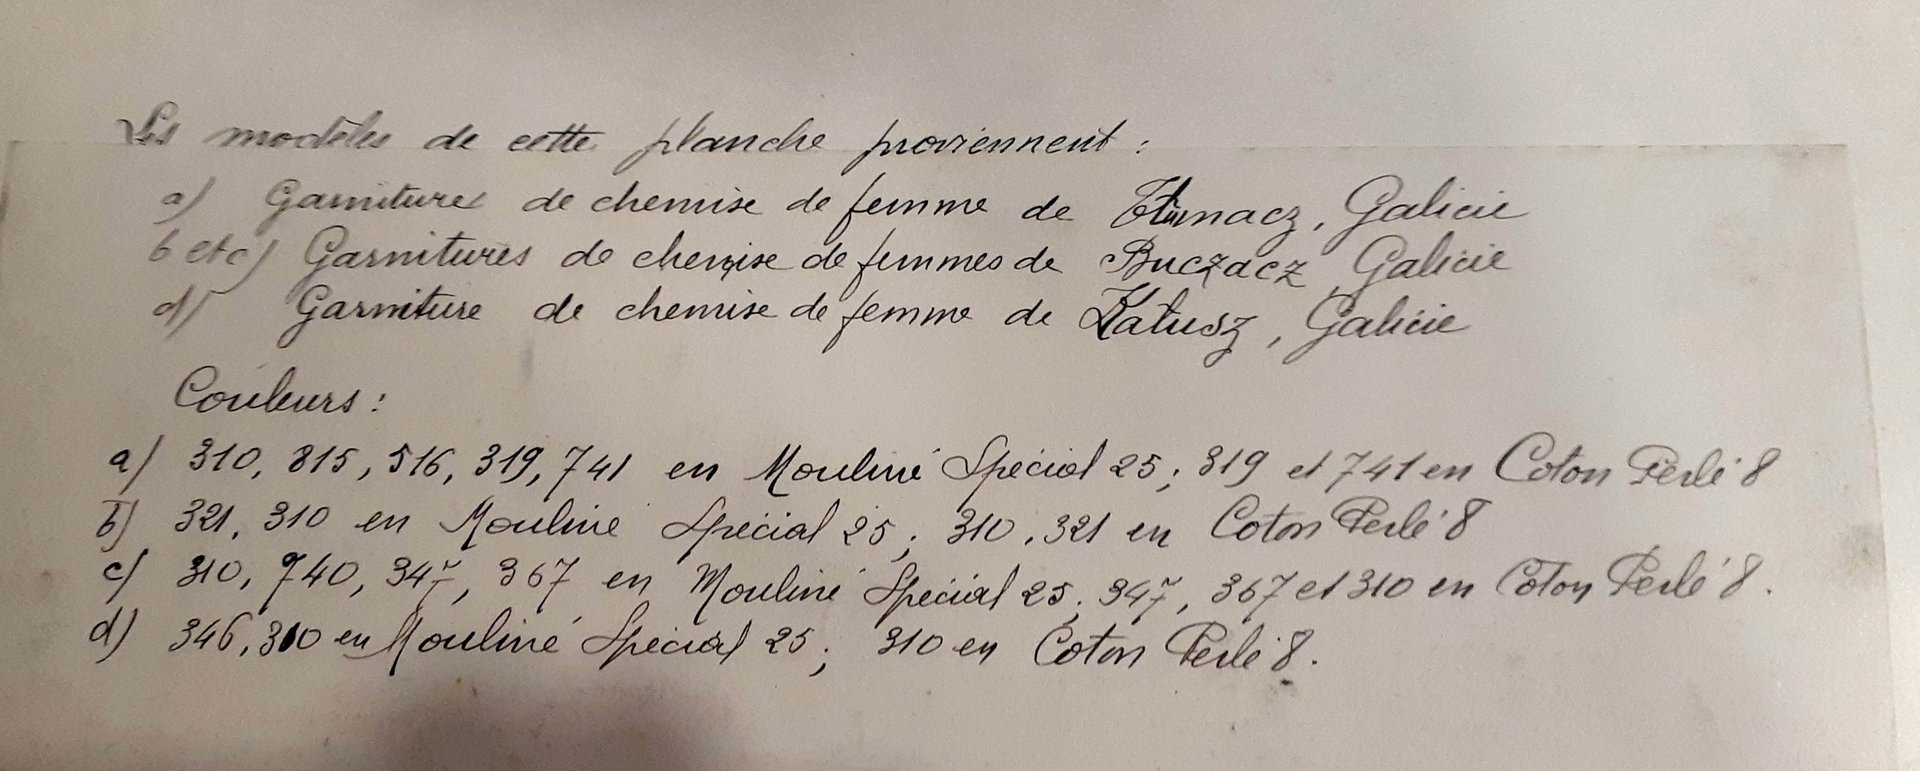 Les modèles de cette planche proviennent :
a) Garnitures de chemise de femme de Tłumacz, Galicie
b et c) Garnitures de chemise de femmes de Buczacz, Galicie
d) Garniture de chemise de femme de Kałusz, Galicie
Couleurs :
a) 310, 815, 516, 319, 741 en Mouliné Spécial 25 ; 319 et 741 en Coton Perlé 8
b) 321, 310 en Mouliné Spécial 25 ; 310, 321 en Coton Perlé 8
c) 310, 740, 347, 367 en Mouliné Spécial 25 ; 347, 367 et 310 en Coton Perlé 8.
d) 346, 310 en Mouliné Spécial 25 ; 310 en Coton Perlé 8.